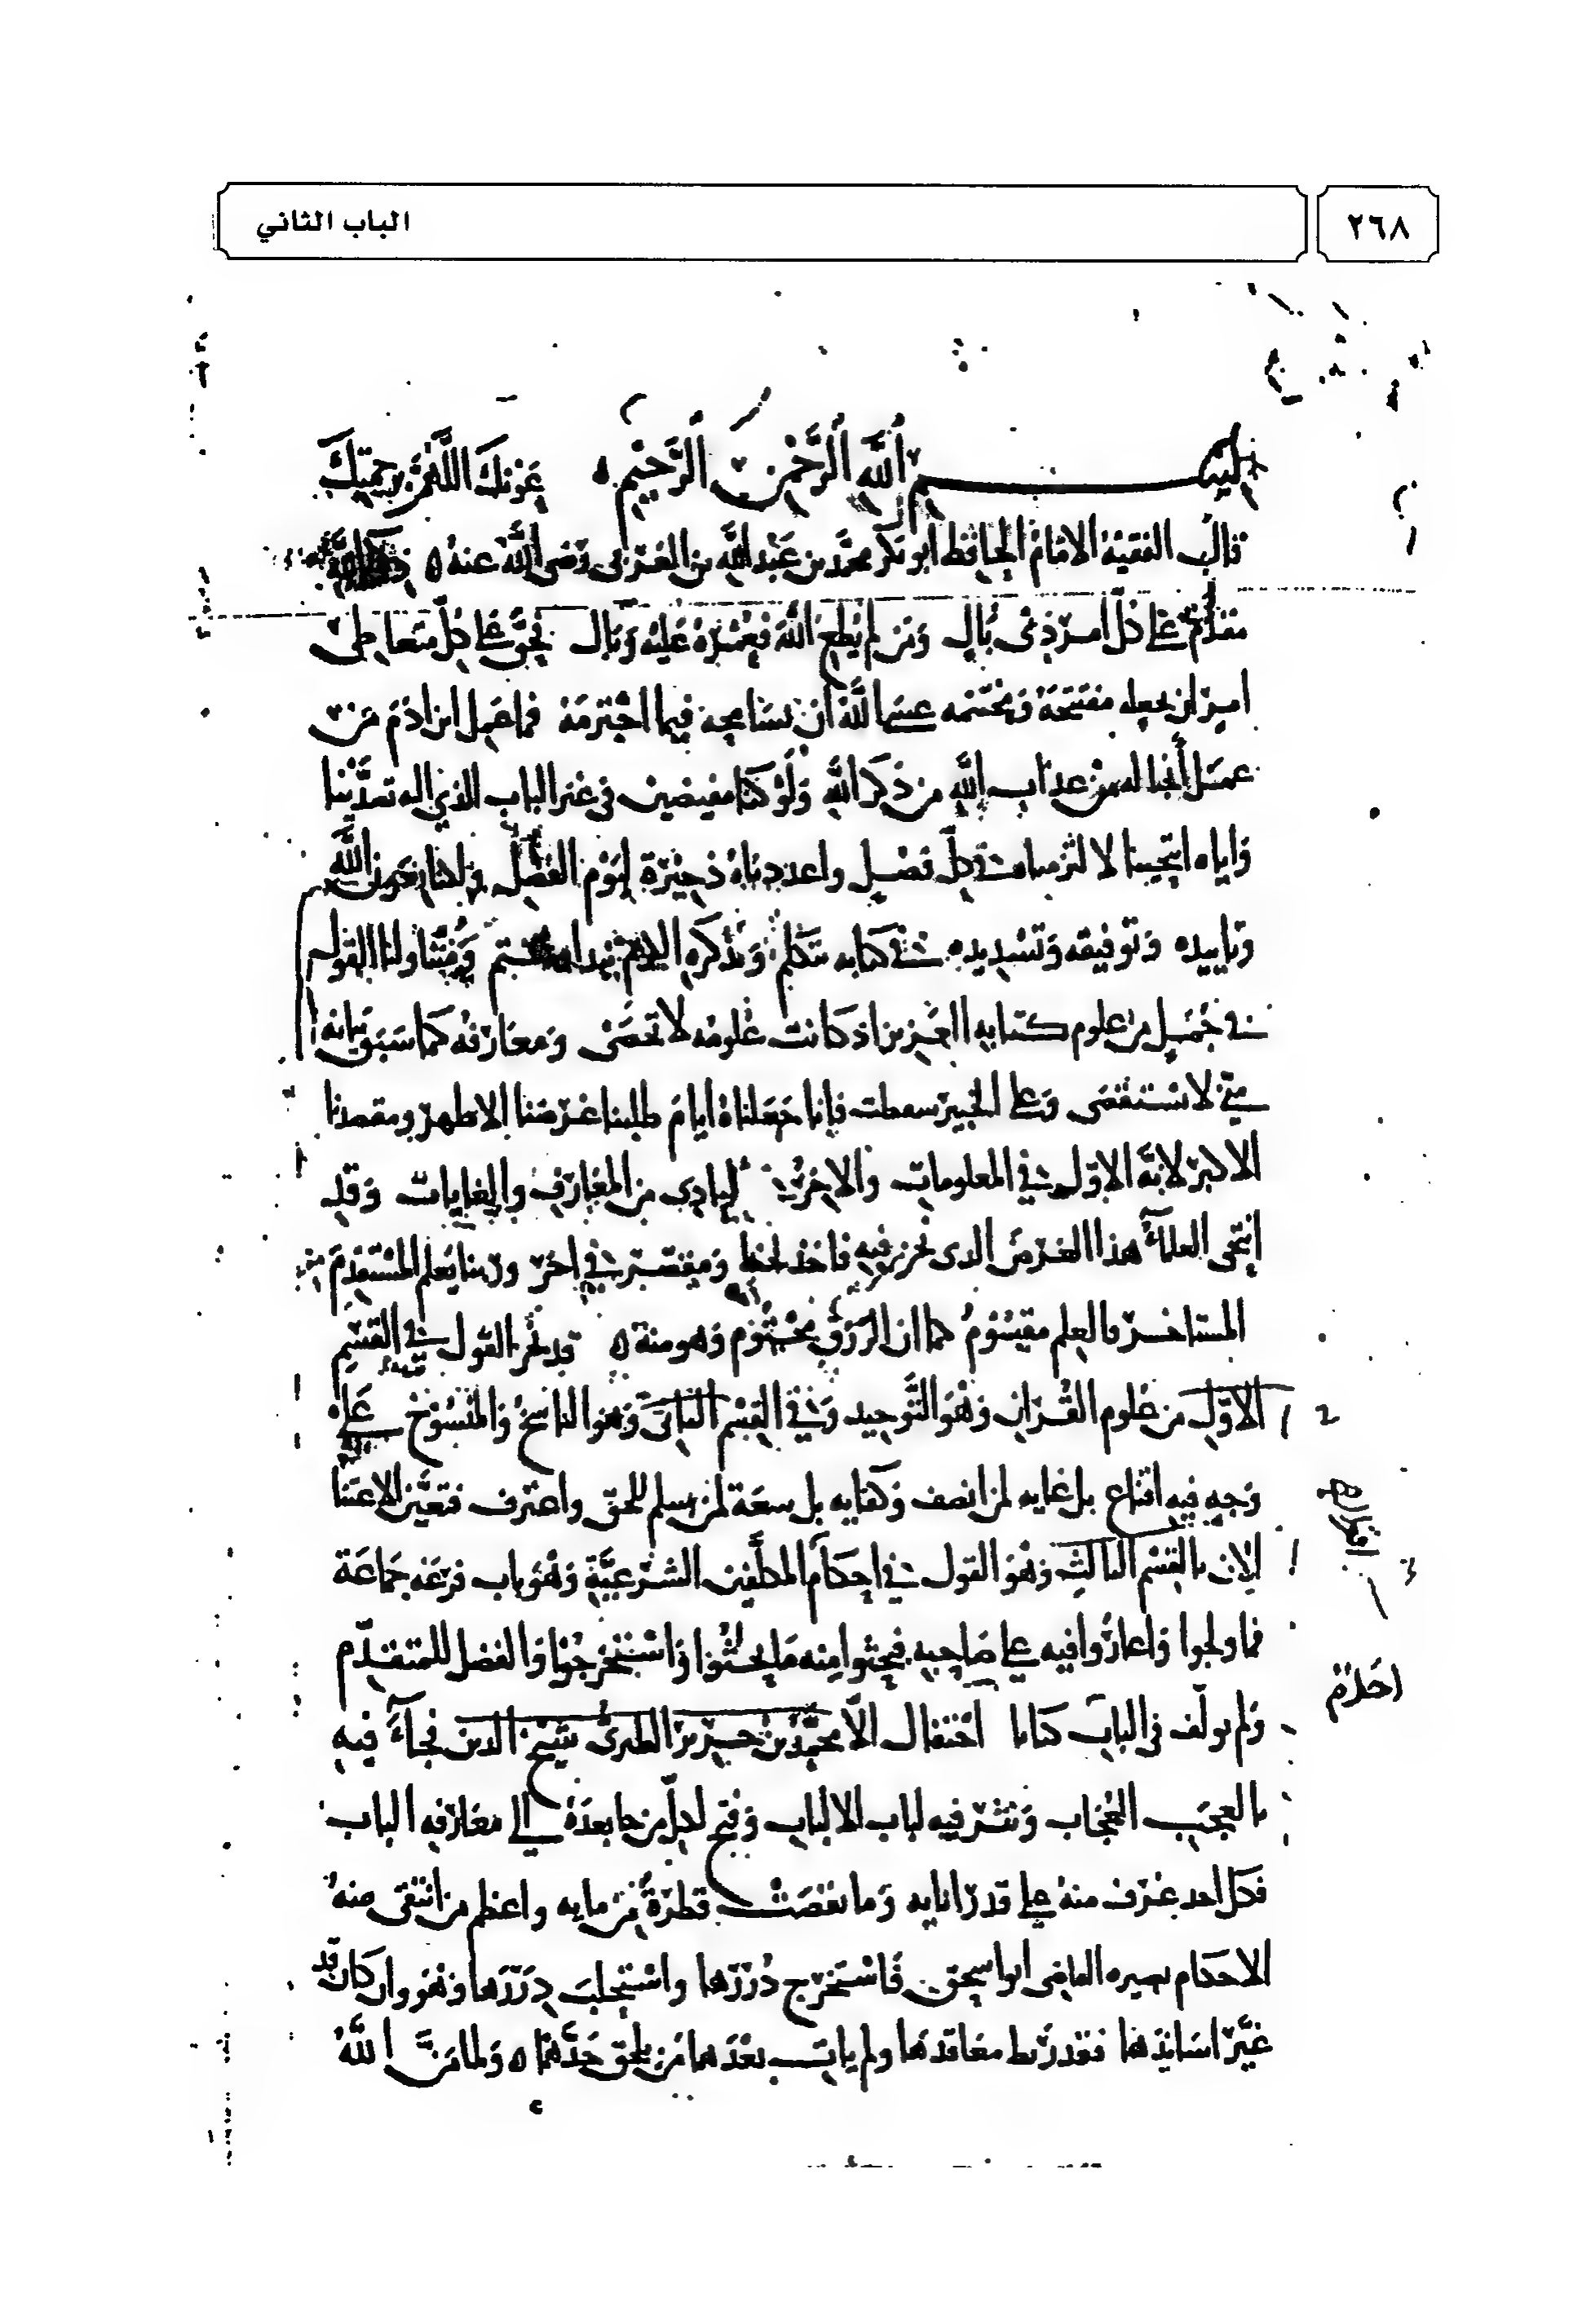 ٢٦٨
الباب الثاني
بسم الله الرحمن الرحيم عونك اللهم برحمتك
قال الفقيه الامام الحافظ ابو بكر محمد بن عبد الله بن العربي رضي الله عنه ذكر الله
مقدم على كل امر ذي بال ومن لم يطع الله فعشرة عليه وبال فحق على كل متعاطي
امر ان يجعله مفتتحه ومختتمه عسى الله ان يسامحه فيما اجترمه فما عمل ابن ادم من
عمل أنجا له من عذاب الله من ذكر الله ولو كنا مفيضين في غير الباب الذي اليه تصدينا
واياه انتحينا لالتزمناه في كل فصل واعددناه ذخيرة ليوم الفصل ولكنا بعون الله
وتاييده وتوفيقه وتسديده في كتابه نتكلم وبذكره اللازم نبدا ونختتم وقد تناولنا القول
في جمل من علوم كتابه العزيز اذ كانت علومه لا تحصى ومعارفه كما سبق بيانه
لا تستقصى وعلى الخبير سقطت فإنا جعلناه ايام طلبنا غرضنا الاظهر ومقصدنا
الاكبر لانه الاول في المعلومات والاخر المبادي من المعارف والغايات وقد
انتحى العلماء هذا الغرض الذي نحن فيه فاخذ لحظا ومقتصر في اخر وربنا يعلم المستقدم من
المستاخر فالعلم مقسوم كما ان الرزق مختوم وهو منه قد نجز القول في القسم
الاول من علوم القران وهو التوحيد وفي القسم الثاني وهو الناسخ والمنسوخ على
وجه فيه اقناع بل غايه لمن انصف وكفايه بل سعة لمن سلم للحق واعترف فتعين الاعتنا
الان بالقسم الثالث وهو القول في احكام المكلفين الشرعية وهو باب فرعه جماعة
فما ولجوا واغاروا فيه على صاحبه فبحثوا منه ما بحثوا واستخرجوا والفضل للمتقدم
ولم يولف في الباب كتابا احتفال الا محمد بن جرير الطبري شيخ الدين فجاء فيه
بالعجب العجاب ونثر فيه لباب الالباب وفتح لكل من جا بعده الى معارفه الباب
فكل احد غرف منه على قدر انايه وما نقصت قطرة من مايه واعظم من انتقى منه
الاحكام بصيره القاضي ابو اسحق فاستخرج دررها واستجلب دررها وهو وان كان قد
غير اسانيدها فقد ربط معاقدها ولم يات بعدهما من يلحق حدهما ولما من الله
احكام